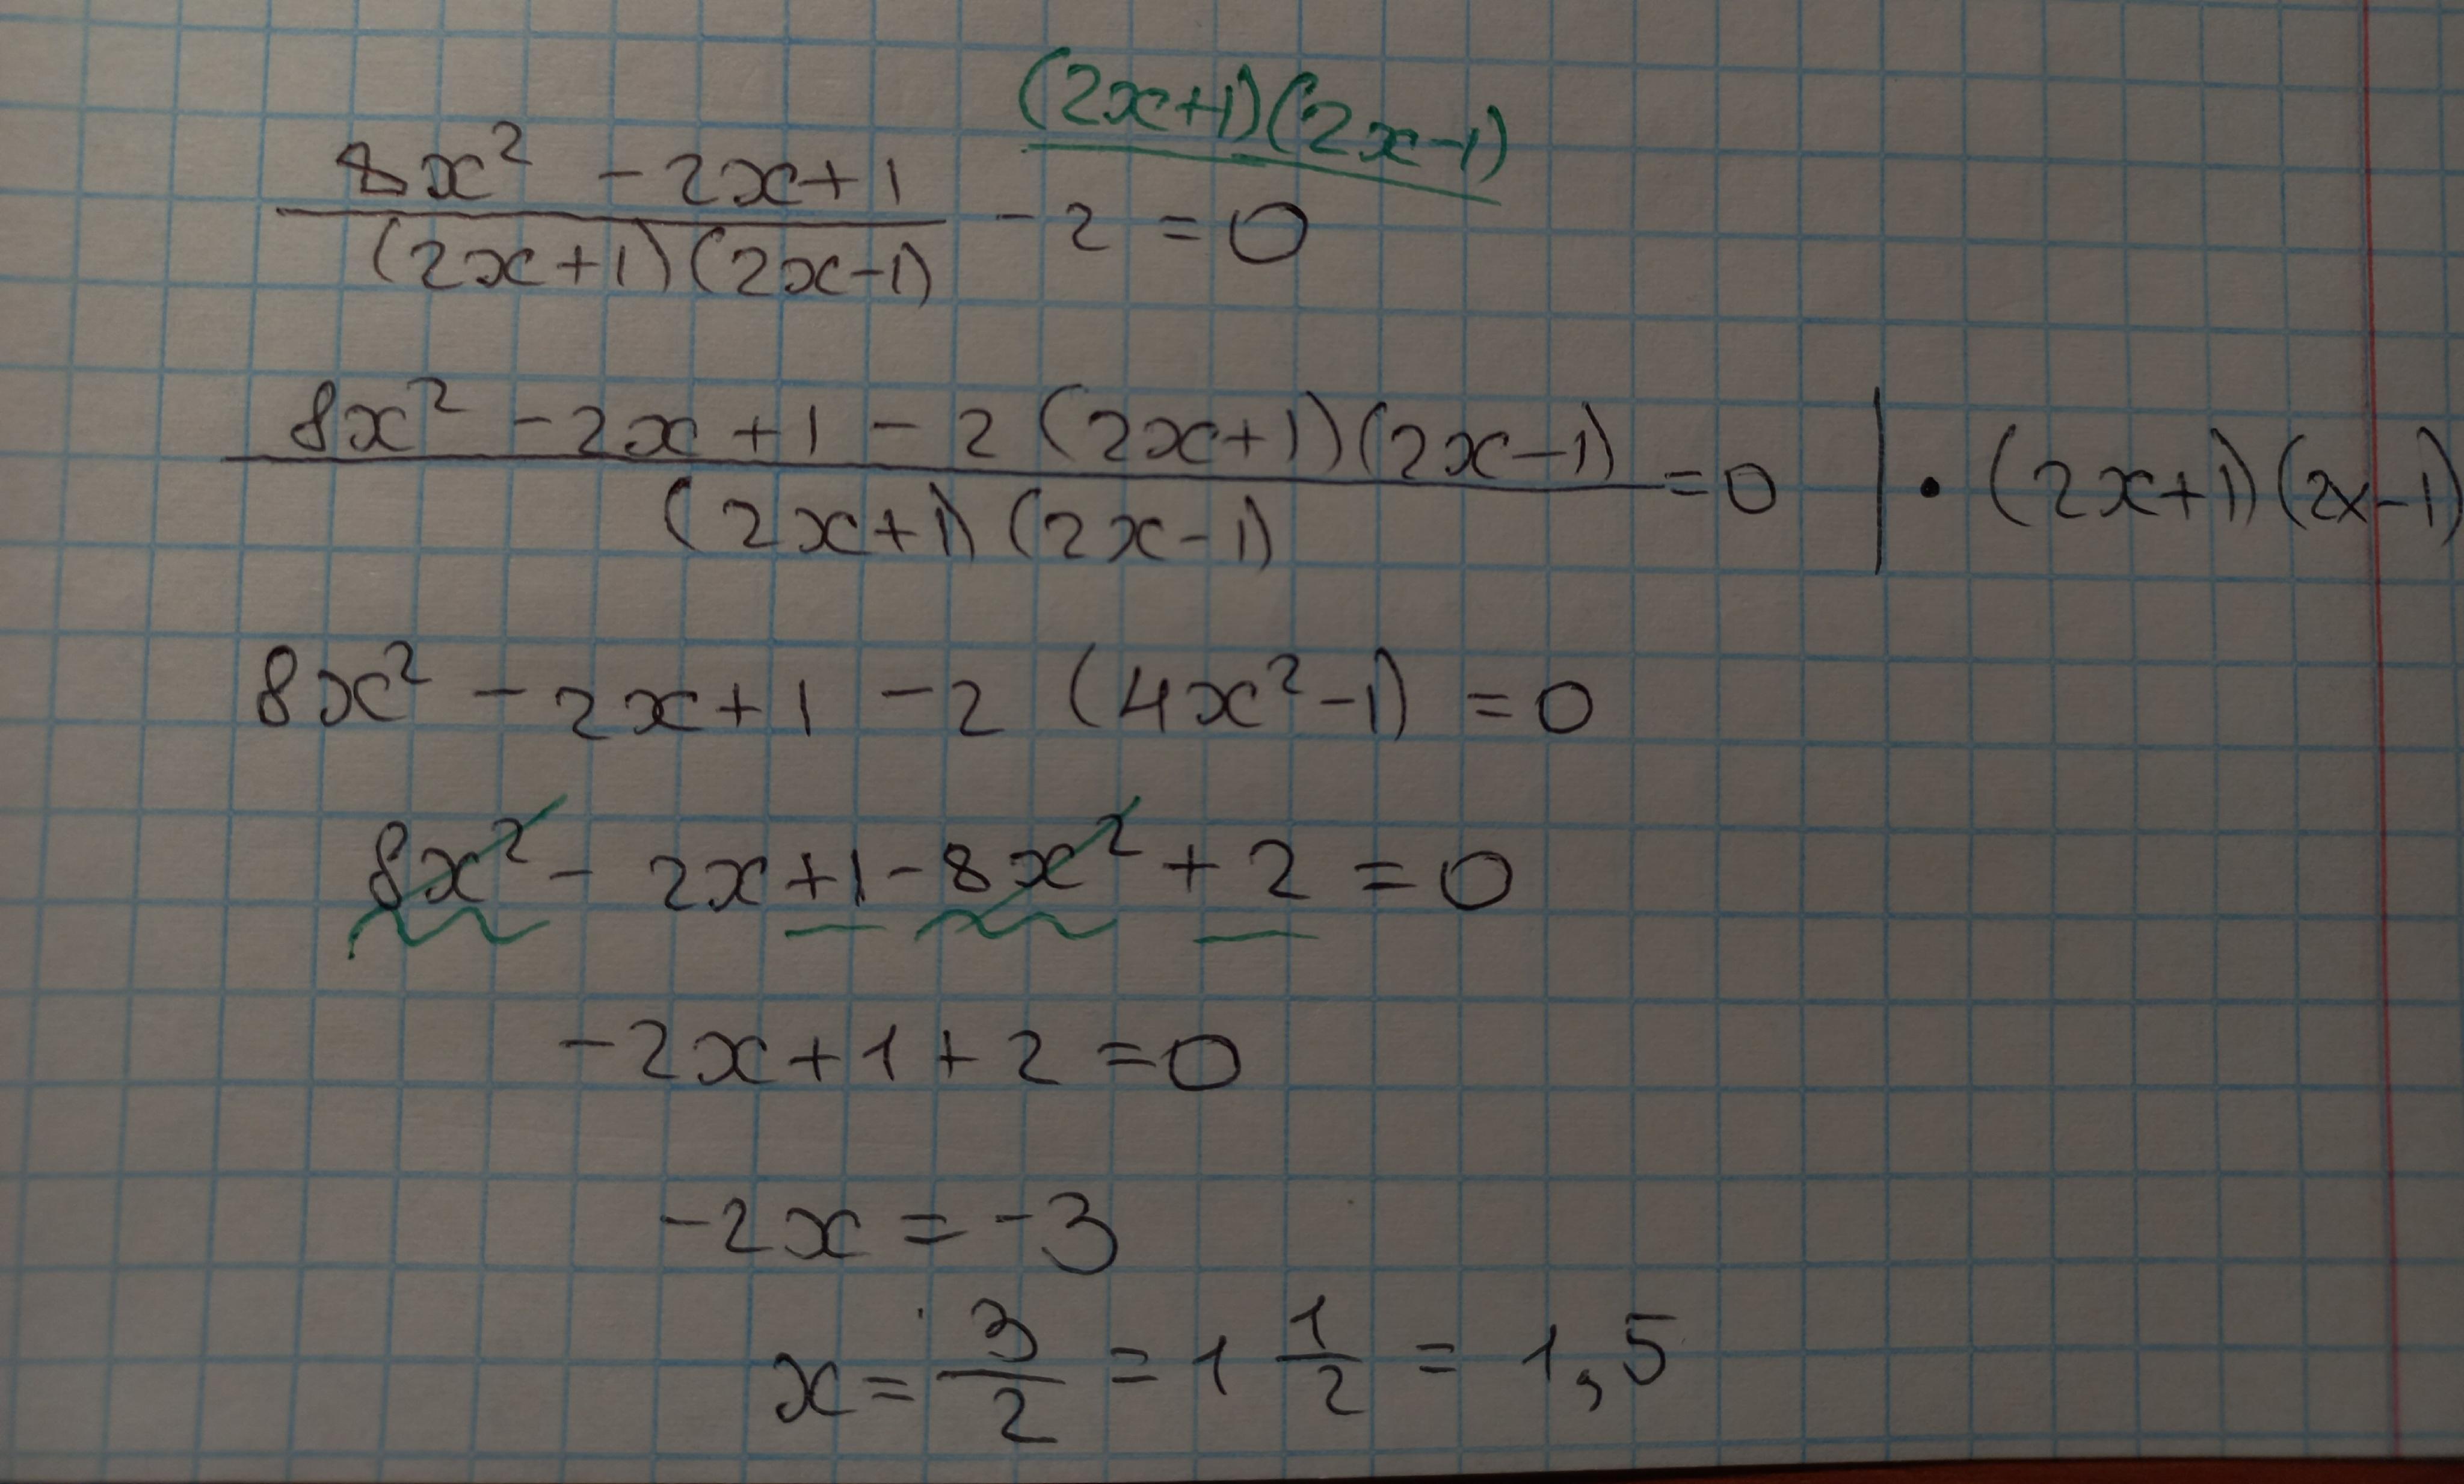 (2x+1)(2x-1)
8x² - 2x+1
(2x+1)(2x-1)
- 2 = 0
8x² - 2x + 1 - 2 (2x+1)(2x-1)
(2x+1)(2x-1)
= 0 | • (2x+1)(2x-1)
8x² - 2x + 1 - 2 (4x²-1) = 0
8x² - 2x + 1 - 8x² + 2 = 0
-2x + 1 + 2 = 0
-2x = -3
x = 3/2 = 1 1/2 = 1,5